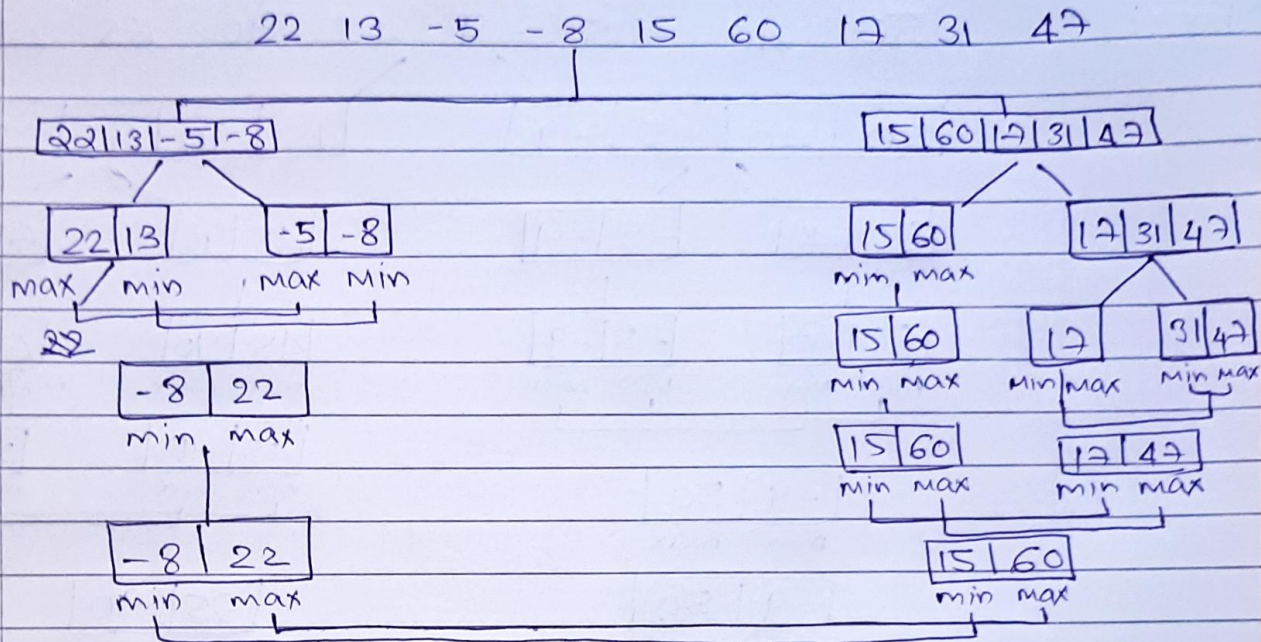 22 13 -5 -8 15 60 17 31 47
22 13 -5 -8 15 60 17 31 47
22 13 -5 -8 15 60 17 31 47
max min max min min max
22 15 60 17 31 47
-8 22 min max min max min max
min max 15 60 17 47
min max min max
-8 22 15 60
min max min max